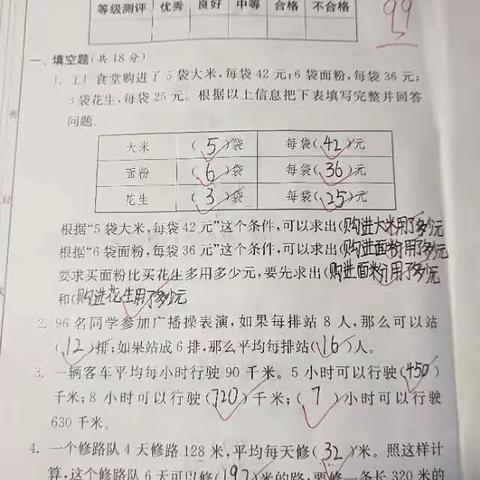 等级测评 优秀 良好 中等 合格 不合格
99
一、填空题(共18分)
1. 工厂食堂购进了5袋大米,每袋42元;6袋面粉,每袋36元;
3袋花生,每袋25元。根据以上信息把下表填写完整并回答
问题。
大米 (5)袋 每袋(42)元
面粉 (6)袋 每袋(36)元
花生 (3)袋 每袋(25)元
根据“5袋大米,每袋42元”这个条件,可以求出(购进大米用了多少元
根据“6袋面粉,每袋36元”这个条件,可以求出(购进面粉用了多少元
要求买面粉比买花生多用多少元,要先求出(购进面粉用了多少元
和(购进花生用了多少元
2. 96名同学参加广播操表演,如果每排站8人,那么可以站
(12)排;如果站成6排,那么平均每排站(16)人。
3. 一辆客车平均每小时行驶90千米。5小时可以行驶(450)
千米;8小时可以行驶(720)千米;(7)小时可以行驶
630千米。
4. 一个修路队4天修路128米,平均每天修(32)米。照这样计
算,这个修路队6天可以修(192)米的路;要修一条长320米的